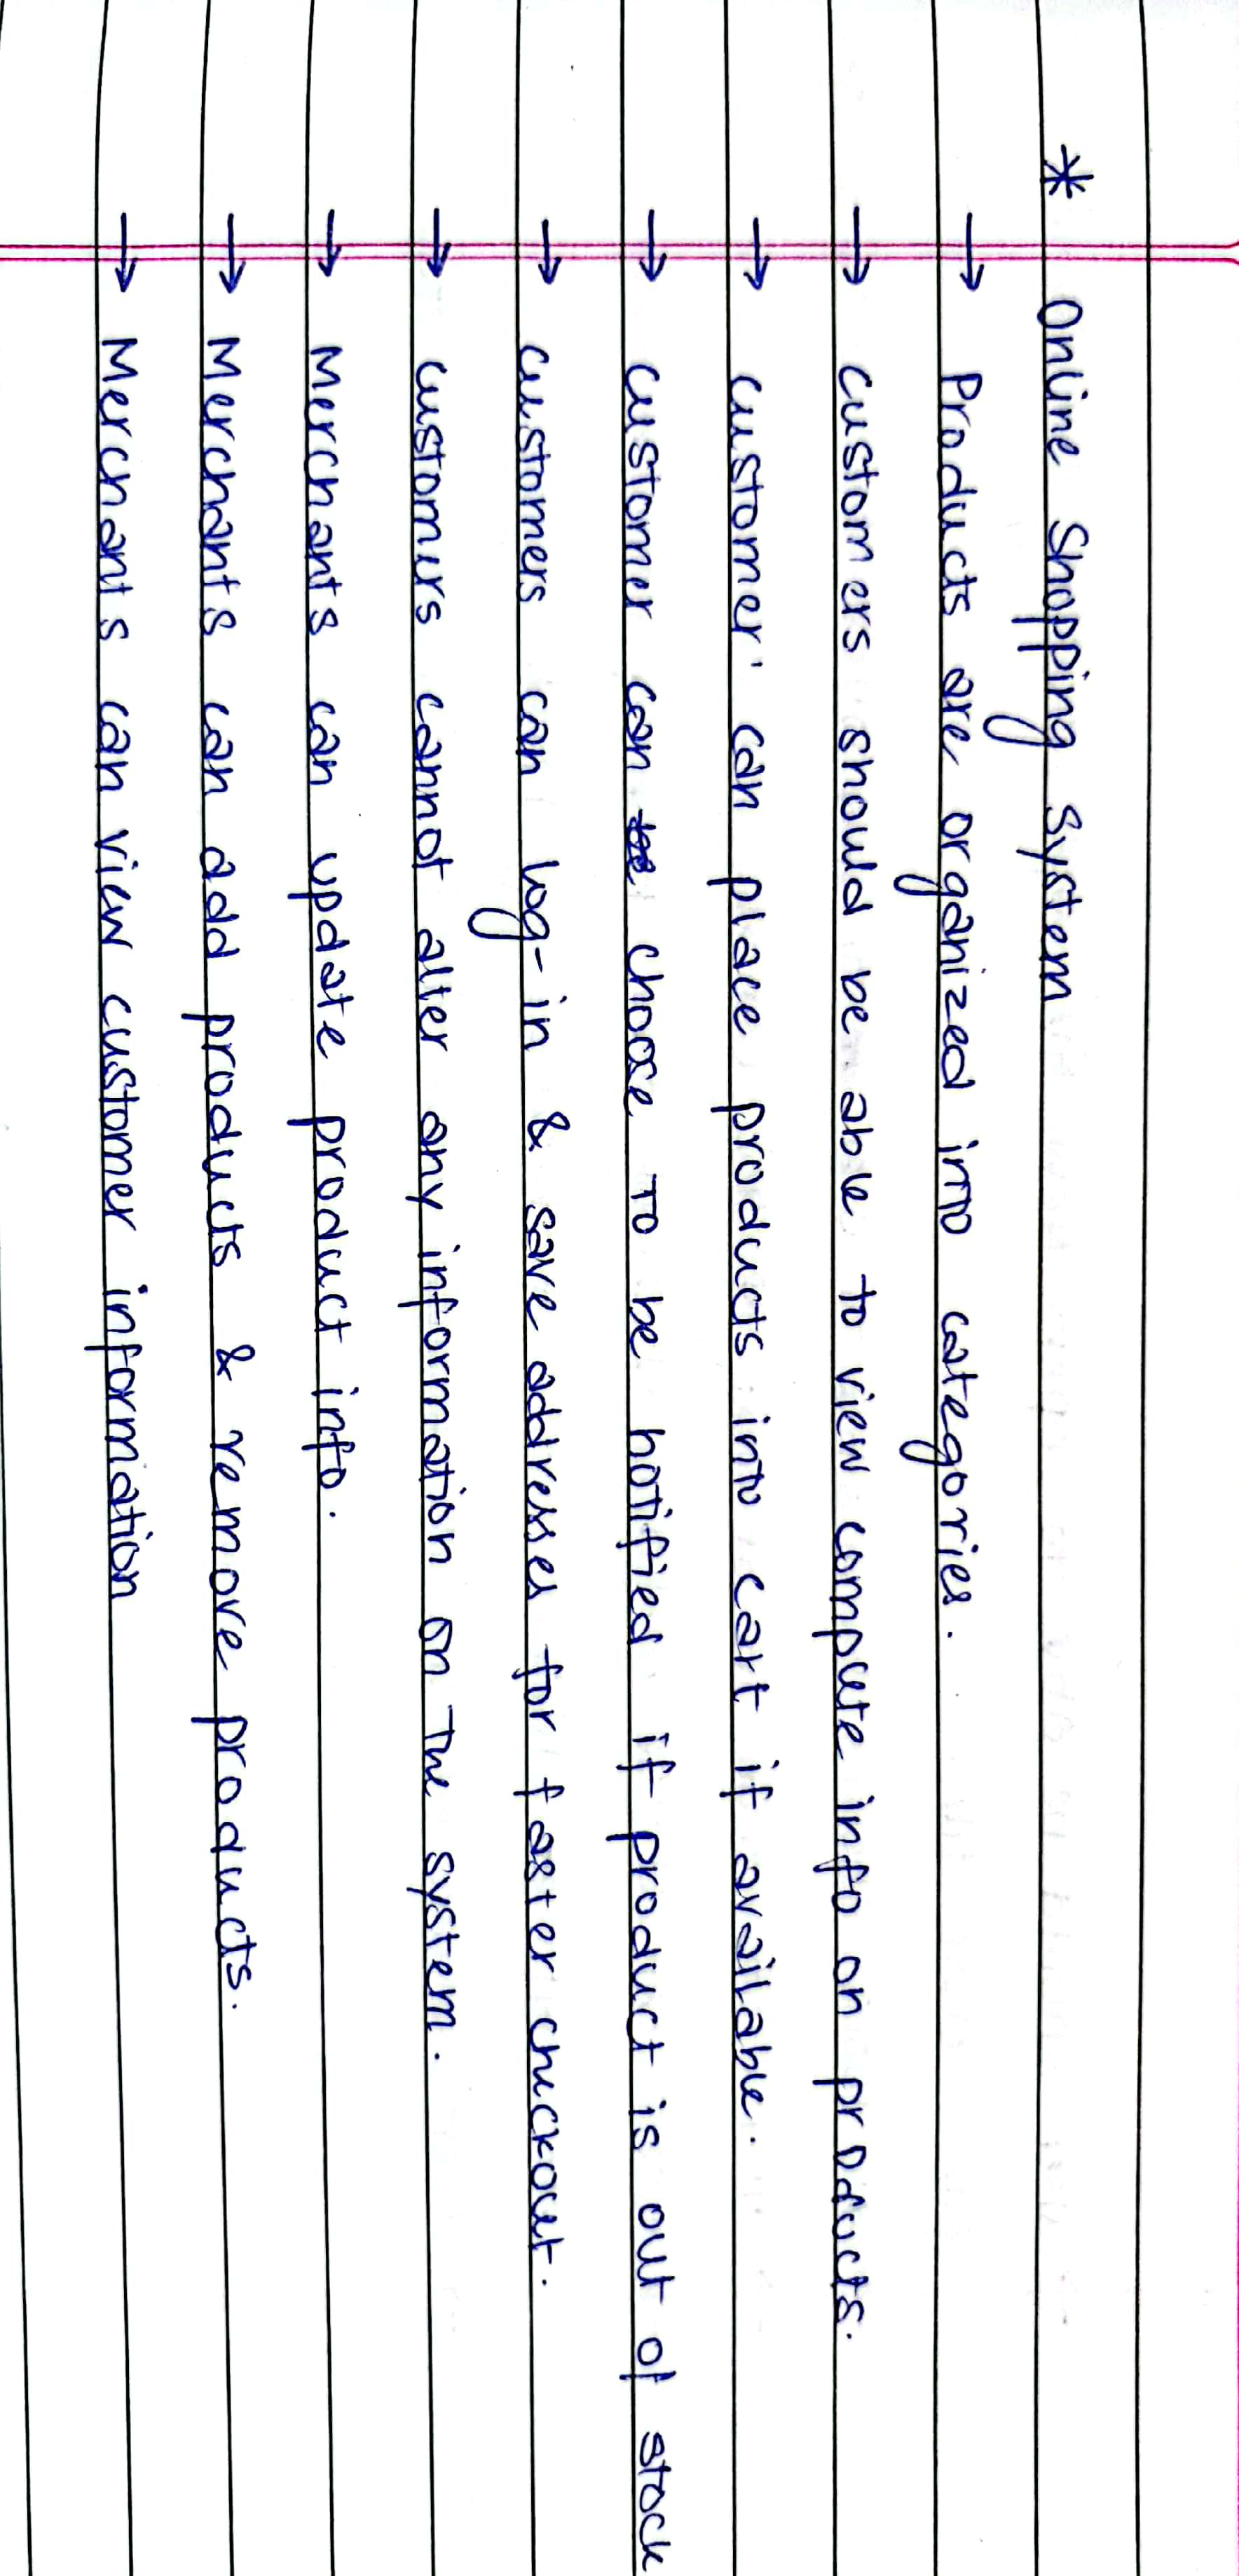 * Online Shopping System
→ Products are organized into categories.
→ Customers should be able to view complete info on products.
→ Customer can place products into cart if available.
→ Customer can choose to be notified if product is out of stock
→ Customers can log-in & save addresses for faster checkout.
→ Customers cannot alter any information on the system.
→ Merchants can update product info.
→ Merchants can add products & remove products.
→ Merchants can view customer information